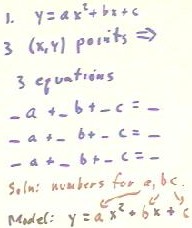 1. y=ax²+bx+c
3 (x,y) points ⇒
3 equations
_ a + _ b + _ c = _
_ a + _ b + _ c = _
_ a + _ b + _ c = _
Soln: numbers for a, b, c.
Model: y = a x² + b x + c